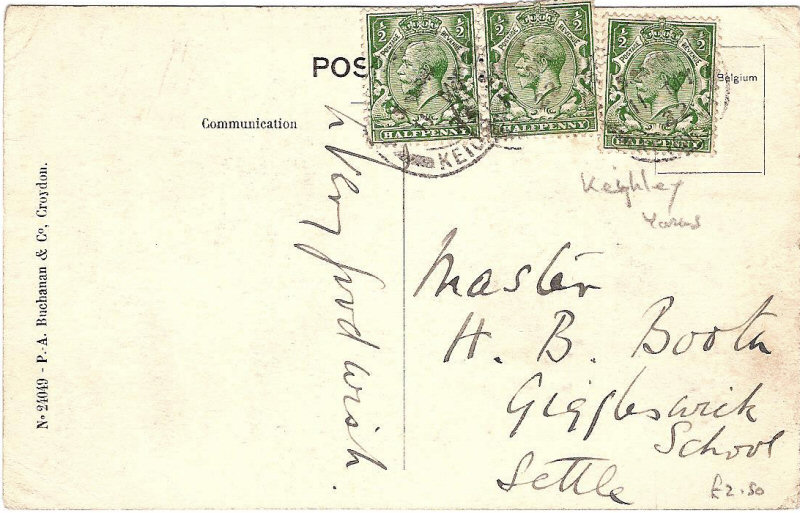 POS
Communication
Nº 24049 - P.-A. Buchanan & Cº, Croydon.
½ ½
POSTAGE REVENUE
HALFPENNY
½ ½
POSTAGE REVENUE
HALFPENNY
½ ½
POSTAGE REVENUE
HALFPENNY
KEIG
22
Belgium
Keighley
Very good wish.
Master
H. B. Booth
Giggleswick
School
Settle
£2.50